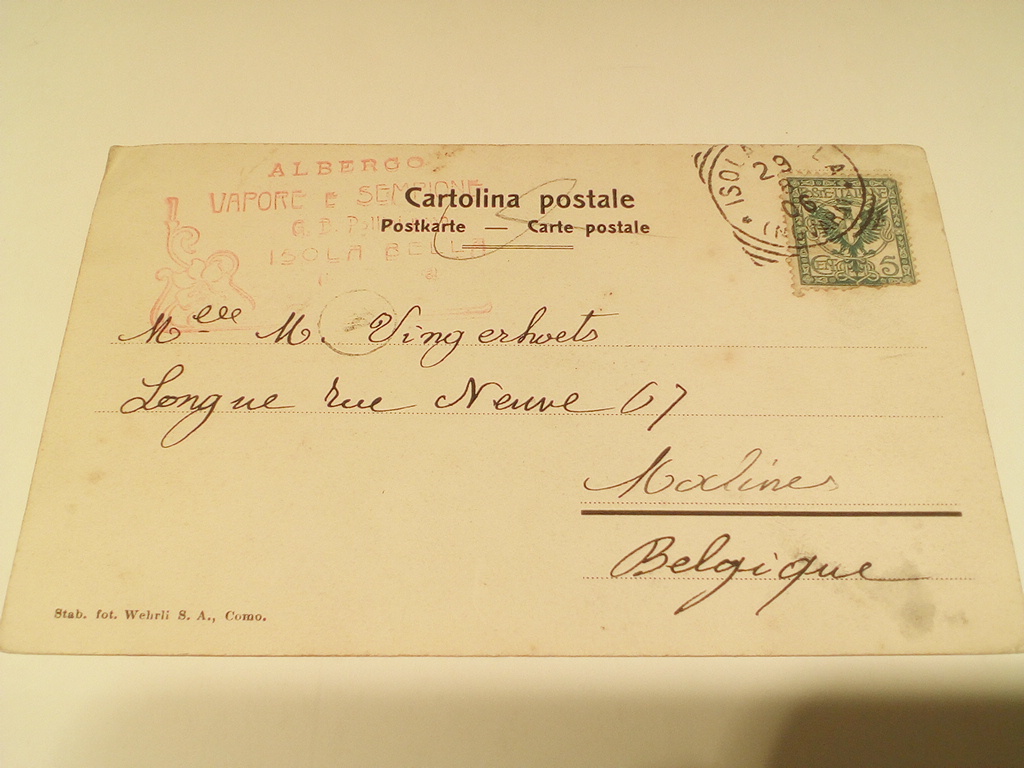 ALBERGO
VAPORE E SEMPIONE
G. B.
ISOLA BELLA
Cartolina postale
Postkarte — Carte postale
ISOLA BELLA
5
Melle M. Vingerhoets
Longue rue Neuve 67
Malines
Belgique
Stab. fot. Wehrli S. A., Como.